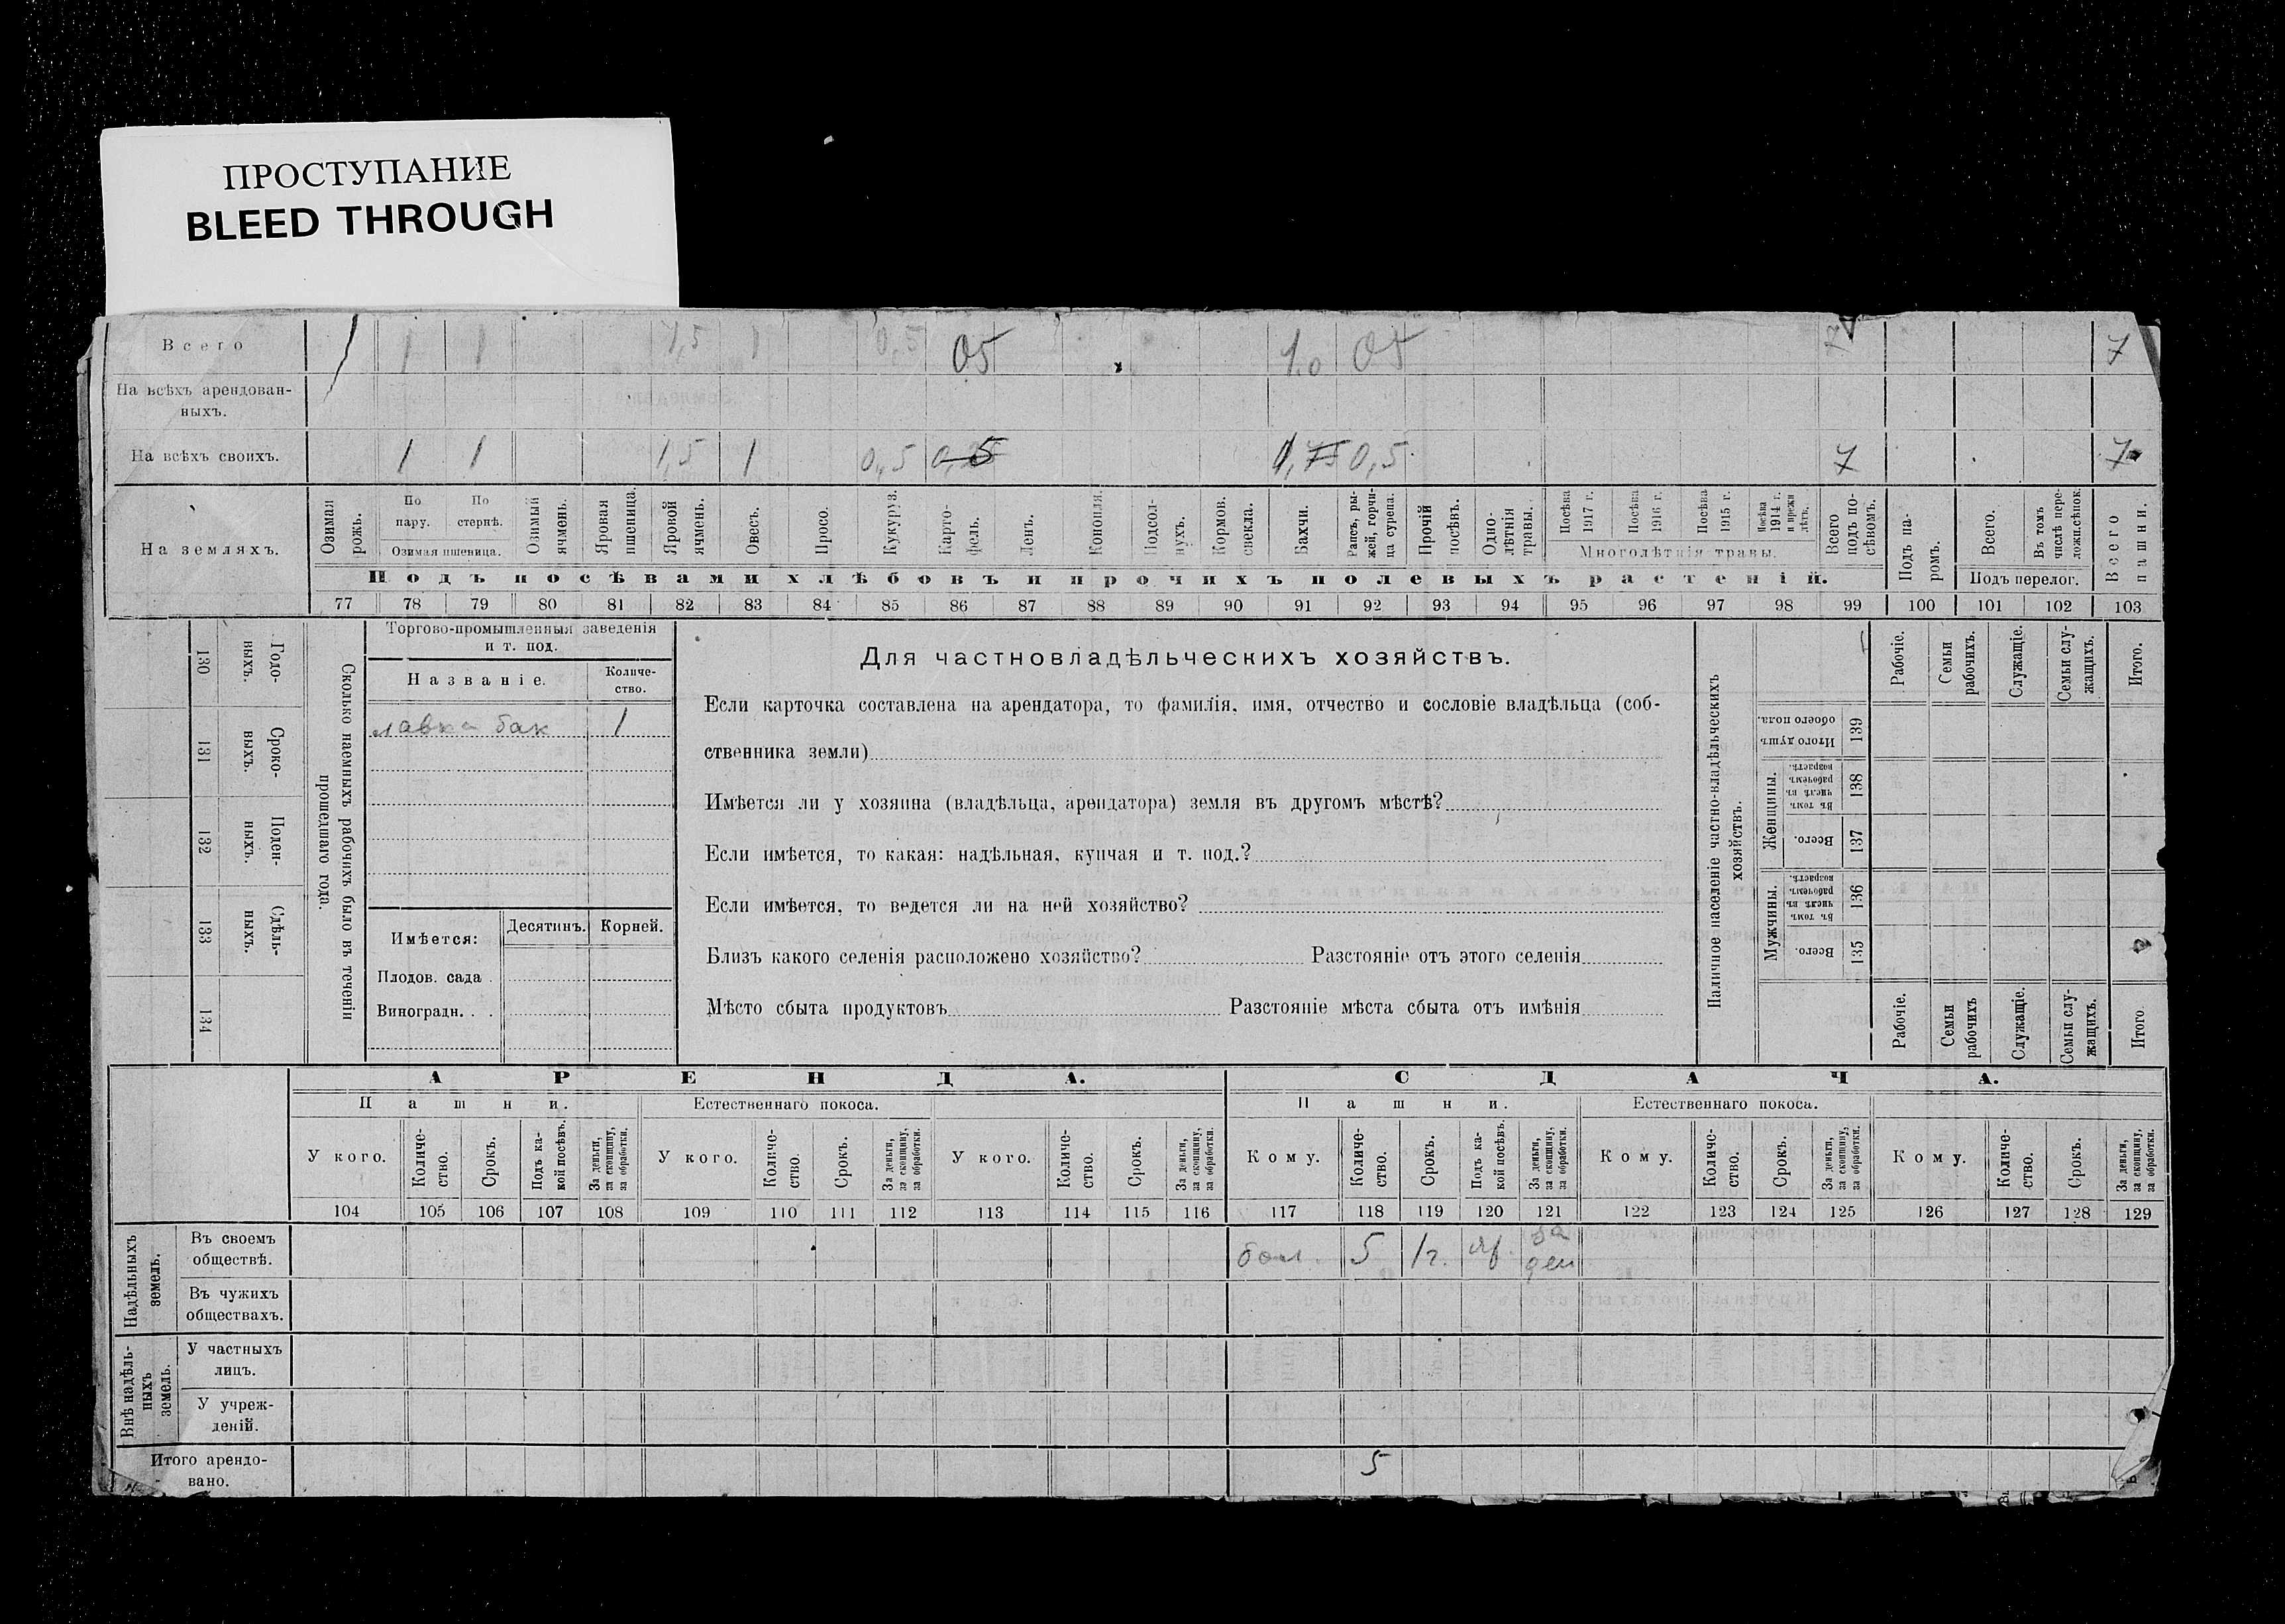 ПРОСТУПАНИЕ
BLEED THROUGH
Всего 1 1 1 1,5 1 0,5 05 1.0 05 7 7
На всѣхъ арендован-
ныхъ.
На всѣхъ своихъ. 1 1 1,5 1 0,5 0,5 1,75 0,5 7 7
На земляхъ.
Озимая рожь.
По пару.
По стернѣ.
Озимая пшеница.
Озимый ячмень.
Яровая пшеница.
Яровой ячмень.
Овесъ.
Просо.
Кукуруз.
Карто-
фель.
Ленъ.
Конопля.
Подсол-
нухъ.
Кормов. свекла.
Бахчи.
Рапсъ, ры-
жей, горчи-
ца сурепа.
Прочій посѣвъ.
Одно-
лѣтнія травы.
Посѣва 1917 г.
Посѣва 1916 г.
Посѣва 1915 г.
Посѣва 1914 г. и прежн лѣтъ.
Многолѣтнія травы.
Всего подъ по-
сѣвомъ.
Подъ па-
ромъ.
Всего.
Въ томъ числѣ пере-
ложн.сѣнок.
Подъ перелог.
Всего пашни.
Подъ посѣвами хлѣбовъ и прочихъ полевыхъ растеній.
77 78 79 80 81 82 83 84 85 86 87 88 89 90 91 92 93 94 95 96 97 98 99 100 101 102 103
130 Годо-
ныхъ.
131 Сроко-
выхъ.
132 Поден-
ныхъ.
133 Сдѣль-
ныхъ.
134
Сколько наемныхъ рабочихъ было въ теченіи
прошедшаго года.
Торгово-промышленныя заведенія
и т. под.
Названіе. Количе-
ство.
лавка бак 1
Имѣется: Десятинъ. Корней.
Плодов. сада .
Виноградн. . .
Для частновладѣльческихъ хозяйствъ.
Если карточка составлена на арендатора, то фамилія, имя, отчество и сословіе владѣльца (соб-
ственника земли)
Имѣется ли у хозяина (владѣльца, арендатора) земля въ другомъ мѣстѣ?
Если имѣется, то какая: надѣльная, купчая и т. под.?
Если имѣется, то ведется ли на ней хозяйство?
Близъ какого селенія расположено хозяйство? Разстояніе отъ этого селенія
Мѣсто сбыта продуктовъ Разстояніе мѣста сбыта отъ имѣнія
Наличное населеніе частно-владѣльческихъ
хозяйствъ.
Рабочіе.
Семьи рабочихъ.
Служащіе.
Семьи слу-
жащихъ.
Итого.
Итого душъ обоего пола. 139
Женщины.
Въ томъ числѣ въ рабочемъ возрастѣ. 138
Всего. 137
Мужчины.
Въ томъ числѣ въ рабочемъ возрастѣ. 136
Всего. 135
Рабочіе.
Семьи рабочихъ
Служащіе.
Семьи слу-
жащихъ.
Итого.
АРЕНДА. СДАЧА.
Пашни. Естественнаго покоса. Пашни. Естественнаго покоса.
У кого. Количе-
ство. Срокъ. Подъ ка-
кой посѣвъ. За деньги, за скопщину, за обработки. У кого. Количе-
ство. Срокъ. За деньги, за скопщину, за обработки. У кого. Количе-
ство. Срокъ. За деньги, за скопщину, за обработки. Кому. Количе-
ство. Срокъ. Подъ ка-
кой посѣвъ. За деньги, за скопщину, за обработки. Кому. Количе-
ство. Срокъ. За деньги, за скопщину, за обработки. Кому. Количе-
ство. Срокъ. За деньги, за скопщину, за обработки.
104 105 106 107 108 109 110 111 112 113 114 115 116 117 118 119 120 121 122 123 124 125 126 127 128 129
Надѣльныхъ земель.
Въ своемъ
обществѣ. 5 1г. за ден
Въ чужихъ
обществахъ.
Внѣ надѣль-
ныхъ земель.
У частныхъ
лицъ.
У учреж-
деній.
Итого арендо-
вано. 5